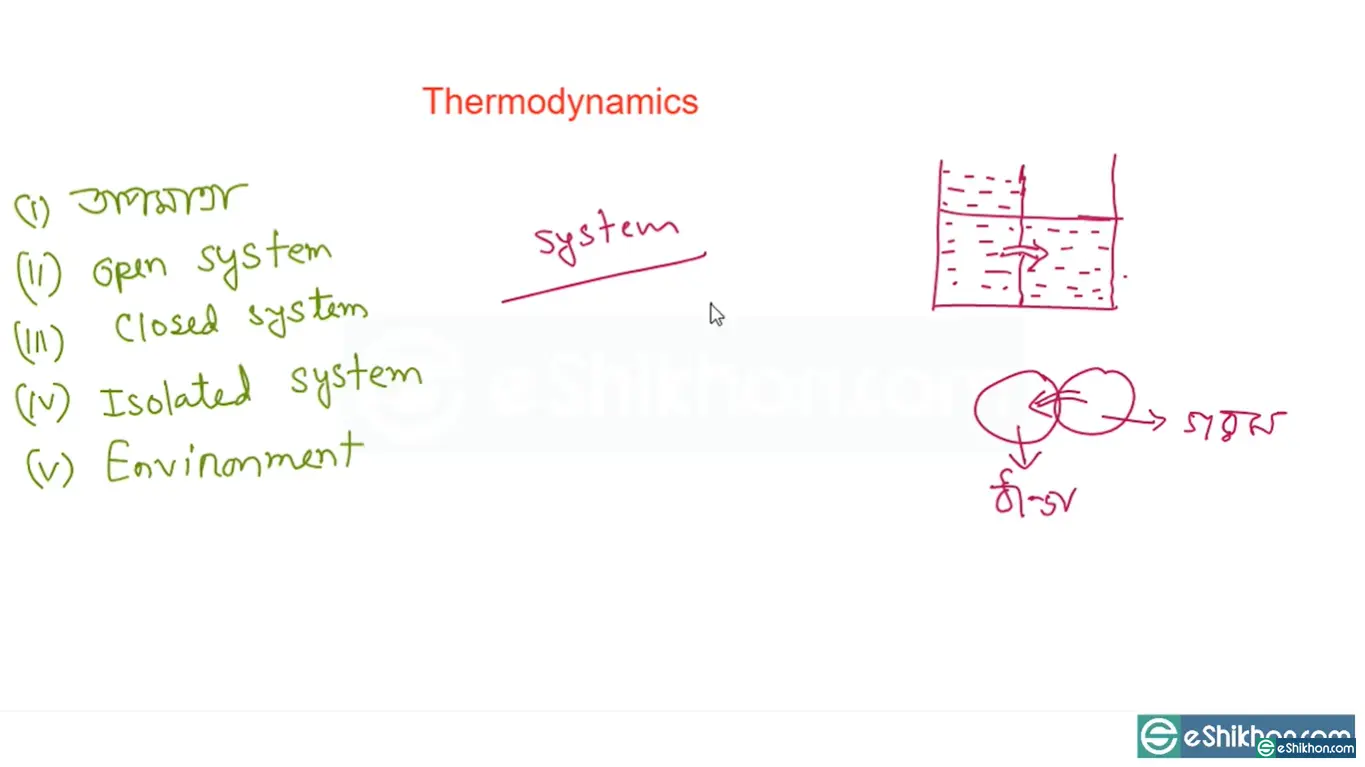 Thermodynamics
(i) তাপমাত্রা
(ii) Open system
(iii) Closed system
(iv) Isolated system
(v) Environment
system
গরম
ঠান্ডা
eShikhon.com
eShikhon.com
eShikhon.com